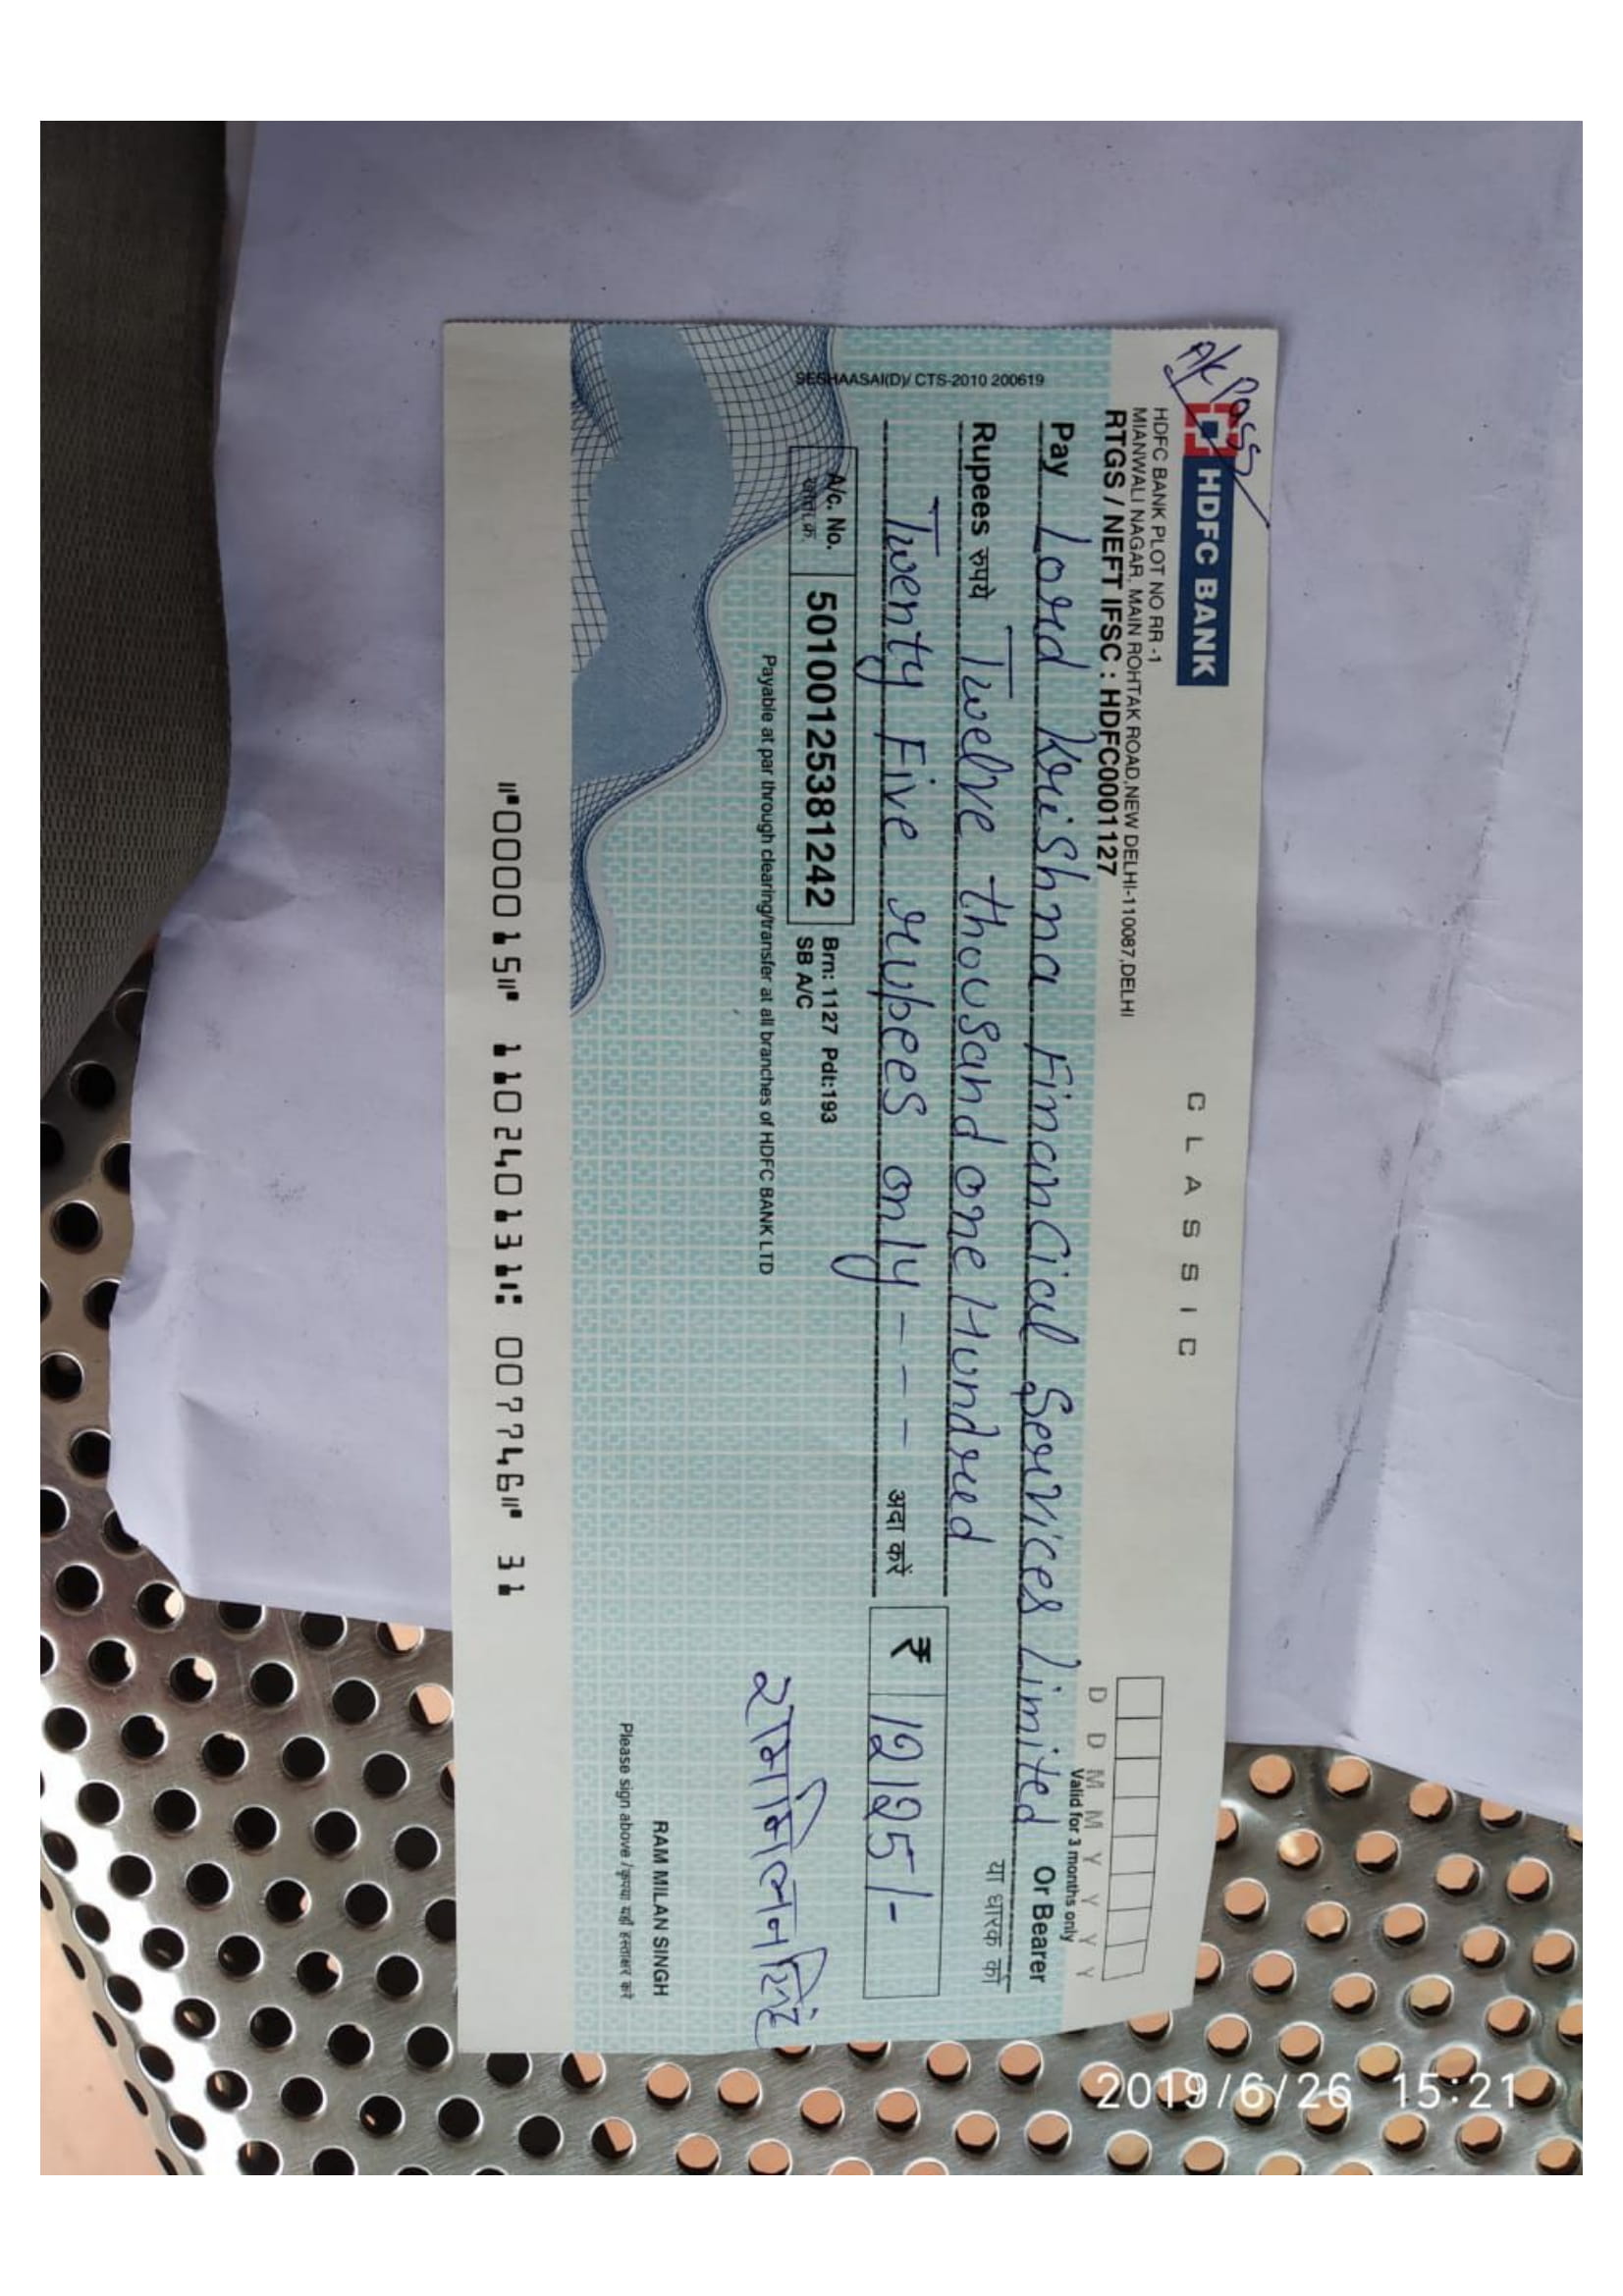 A/c Payee
HDFC BANK
CLASSIC
HDFC BANK PLOT NO RR -1
MIANWALI NAGAR, MAIN ROHTAK ROAD,NEW DELHI-110087,DELHI
RTGS / NEFT IFSC : HDFC0001127
D D M M Y Y Y Y
Valid for 3 months only
Pay Lord Krishna Financial Services Limited Or Bearer
या धारक को
Rupees रुपये Twelve thousand one Hundred
Twenty Five rupees only - - - अदा करें
₹ 12125/-
A/c. No.
खाता क्र.
50100125381242
Brn: 1127 Pdt:193
SB A/C
SESHAASAI(D)/ CTS-2010 200619
Payable at par through clearing/transfer at all branches of HDFC BANK LTD
राममिलन सिंह
RAM MILAN SINGH
Please sign above / कृपया यहाँ हस्ताक्षर करें
⑈000015⑈ 110240131⑆ 007746⑈ 31
2019/6/26 15:21